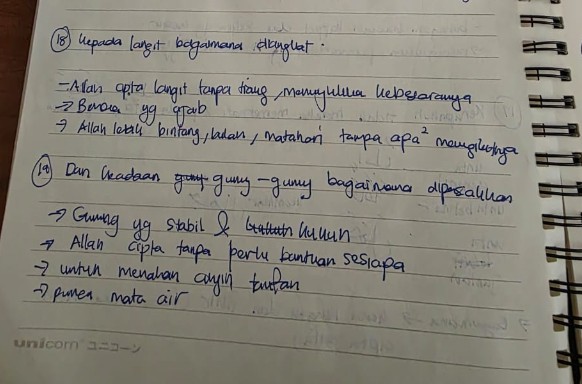 (18) Kepada langit bagaimana diangkat.
- Allah cipta langit tanpa tiang, menunjukkan kebesarannya
→ Benda yg ajaib
→ Allah letak bintang, bulan, matahari tanpa apa² mengikutnya
(19) Dan keadaan gunung-gunung bagaimana dipasakkan
→ Gunung yg stabil & kukuh
→ Allah cipta tanpa perlu bantuan sesiapa
→ untuk menahan angin taufan
→ punca mata air
unicorn ユニコーン